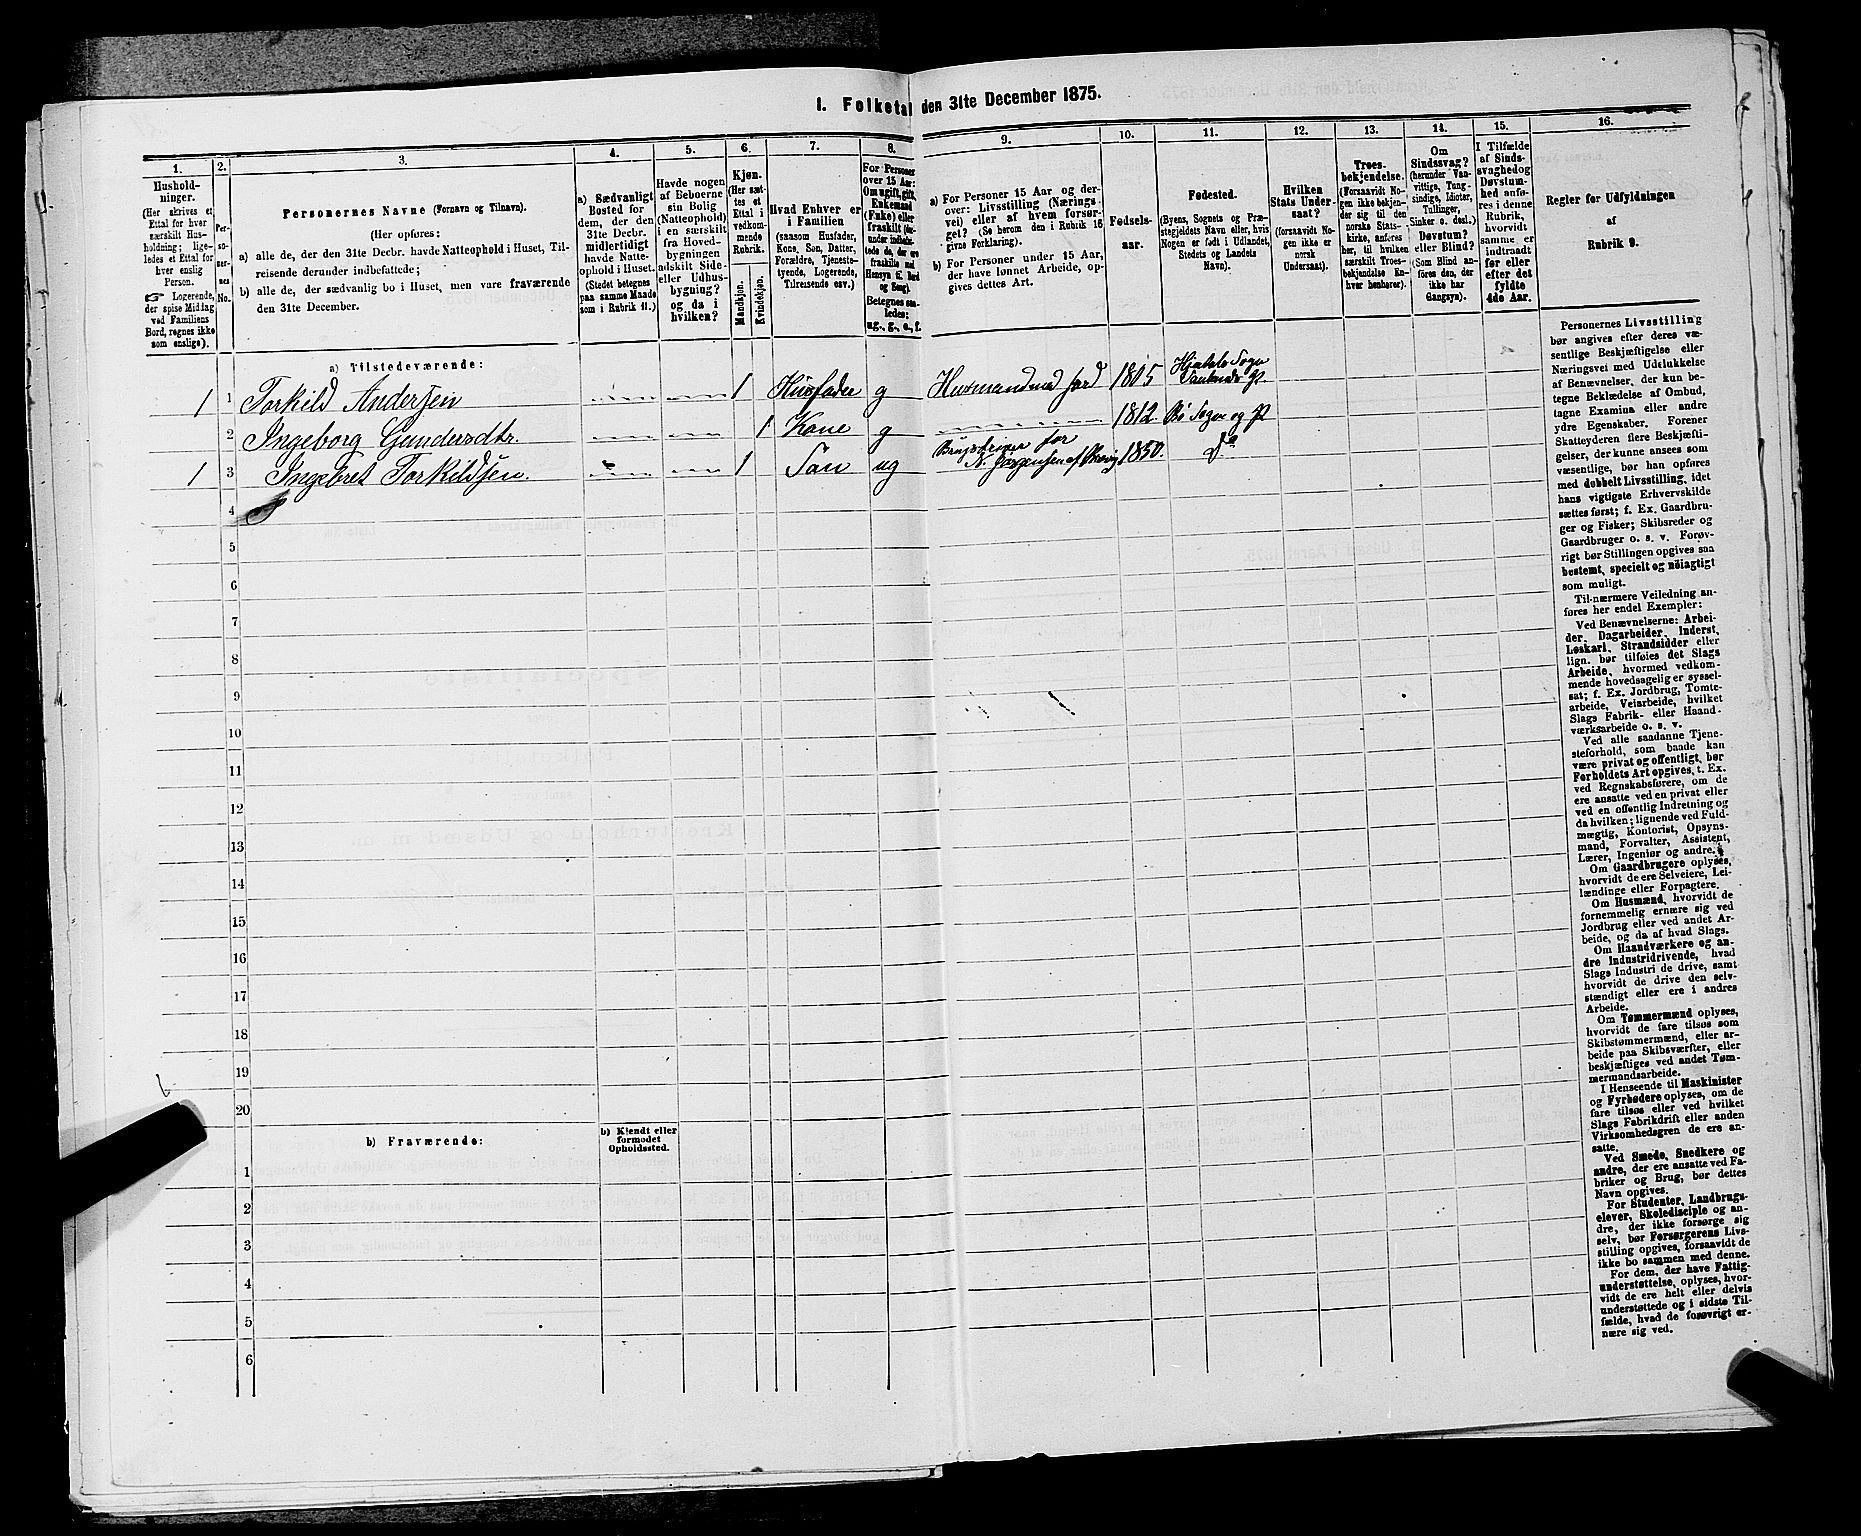 I. Folketal den 31te December 1875.
1.
2.
3.
4.
5.
6.
7.
8.
9.
10.
11.
12.
13.
14.
15.
16.
Hushold-
ninger.
(Her skrives et
Ettal for hver
særskilt Hus-
holdning; lige-
ledes et Ettal for
hver enslig
Person.
☞ Logerende,
der spise Middag
ved Familiens
Bord, regnes ikke
som enslige).
Per-
so-
ner-
nes
No.
Personernes Navne (Fornavn og Tilnavn).
(Her opføres:
a) alle de, der den 31te Decbr. havde Natteophold i Huset, Til-
reisende derunder indbefattede;
b) alle de, der sædvanlig bo i Huset, men vare fraværende
den 31te December.
a) Sædvanligt
Bosted for
dem, der den
31te Decbr.
midlertidigt
havde Natte-
ophold i Huset.
(Stedet betegnes
paa samme Maade
som i Rubrik 11.)
Havde nogen
af Beboerne
sin Bolig
(Natteophold)
i en særskilt
fra Hoved-
bygningen
adskilt Side-
eller Udhus-
bygning?
og da i
hvilken?
Kjøn.
(Her sæt-
tes et
Ettal i
vedkom-
mende
Rubrik.
Mandkjøn.
Kvindekjøn.
Hvad Enhver er
i Familien
(saasom Husfader,
Kone, Søn, Datter,
Forældre, Tjeneste-
tyende, Logerende,
Tilreisende osv.)
For Personer
over 15 Aar:
Om ugift, gift,
Enkemand
(Enke) eller
fraskilt
Betegnes saa-
ledes:
ug., g., e., f.
a) For Personer 15 Aar og der-
over: Livsstilling (Nærings-
vei) eller af hvem forsør-
get? (Se herom den i Rubrik 16
givne Forklaring).
b) For Personer under 15 Aar,
der have lønnet Arbeide, op-
gives dettes Art.
Fødsels-
aar.
Fødested.
(Byens, Sognets og Præ-
stegjeldets Navn eller, hvis
Nogen er født i Udlandet,
Stedets og Landets
Navn).
Hvilken
Stats Under-
saat?
(forsaavidt No-
gen ikke er
norsk
Undersaat).
Troes-
bekjendelse.
(Forsaavidt No-
gen ikke bekjen-
der sig til den
norske Stats-
kirke, anføres
her, til hvilken
særskilt Troes-
bekjendelse En-
hver henhører).
Om
Sindssvag?
(herunder Van-
vittige, Tung-
sindige, Idioter,
Tullinger,
Sinker o. desl.).
Døvstum?
eller Blind?
(Som Blind an-
føres den, der
ikke har
Gangsyn).
I Tilfælde
af Sinds-
svaghed og
Døvstum-
hed anfø-
res i denne
Rubrik,
hvorvidt
samme er
indtraadt
før eller
efter det
fyldte
4de Aar.
Regler for Udfyldningen
af
Rubrik 9.
a) Tilstedeværende:
1 1 Torkild Andersen 1 Husfader g Husmand med Jord 1805 Hjatdals Sogn
2 Ingeborg Gundersdtr. 1 Kone g 1812. Bø Sogn og P
1 3 Ingebret Torkildsen. 1 Søn ug 1850. Do
4
5
6
7
8
9
10
11
12
13
14
15
16
17
18
19
20
b) Fraværende:
b) Kjendt eller
formodet
Opholdssted.
1
2
3
4
5
6
Personernes Livsstilling
bør angives efter deres væ-
sentlige Beskjæftigelse eller
Næringsvei med Udelukkelse
af Benævnelser, der kun be-
tegne Beklædelse af Ombud,
tagne Examina eller andre
ydre Egenskaber. Forener
Skatteyderen flere Beskjæfti-
gelser, der kunne ansees som
væsentlige, bør han opføres
med dobbelt Livsstilling, idet
hans vigtigste Erhvervskilde
sættes først; f. Ex. Gaardbru-
ger og Fisker; Skibsreder og
Gaardbruger o. s. v. Forøv-
rigt bør Stillingen opgives saa
bestemt, specielt og nøiagtigt
som muligt.
Til nærmere Veiledning an-
føres her endel Exempler:
Ved Benævnelserne: Arbei-
der, Dagarbeider, Inderst,
Løskarl, Strandsidder eller
lign. bør tilføies det Slags
Arbeide, hvormed vedkom-
mende hovedsagelig er syssel-
sat; f. Ex. Jordbrug, Tomte-
arbeide, Veiarbeide, hvilket
Slags Fabrik- eller Haand-
værksarbeide o. s. v.
Ved alle saadanne Tjene-
steforhold, som baade kan
være privat og offentligt, bør
Forholdets Art opgives, t. Ex.
ved Regnskabsførere, om de
ere ansatte ved en privat eller
ved en offentlig Indretning og
da hvilken; lignende ved Fuld-
mægtig, Kontorist, Opsyns-
mand, Forvalter, Assistent,
Lærer, Ingeniør og andre.
Om Gaardbrugere oplyses,
hvorvidt de ere Selveiere, Lei-
lændinge eller Forpagtere.
Om Husmænd, hvorvidt de
fornemmelig ernære sig ved
Jordbrug eller ved andet Ar-
beide, og da af hvad Slags.
Om Haandværkere og an-
dre Industridrivende, hvad
Slags Industri de drive, samt
hvorvidt de drive den selv-
stændigt eller ere i andres
Arbeide.
Om Tømmermænd oplyses,
hvorvidt de fare tilsøs som
Skibstømmermænd, eller ar-
beide paa Skibsværfter, eller
beskjæftiges ved andet Tøm-
mermandsarbeide.
I Henseende til Maskinister
og Fyrbødere oplyses, om de
fare tilsøs eller ved hvilket
Slags Fabrikdrift eller anden
Virksomhedsgren de ere an-
satte.
Ved Smede, Snedkere og
andre, der ere ansatte ved Fa-
briker og Brug, bør dettes
Navn opgives.
For Studenter, Landbrugs-
elever, Skoledisciple og an-
dre, der ikke forsørge sig
selv, bør Forsørgerens Livs-
stilling opgives, forsaavidt de
ikke bo sammen med denne.
For dem, der have Fattig-
understøttelse, oplyses, hvor-
vidt de ere helt eller delvis
understøttede og i sidste Til-
fælde, hvad de forøvrigt er-
nære sig ved.